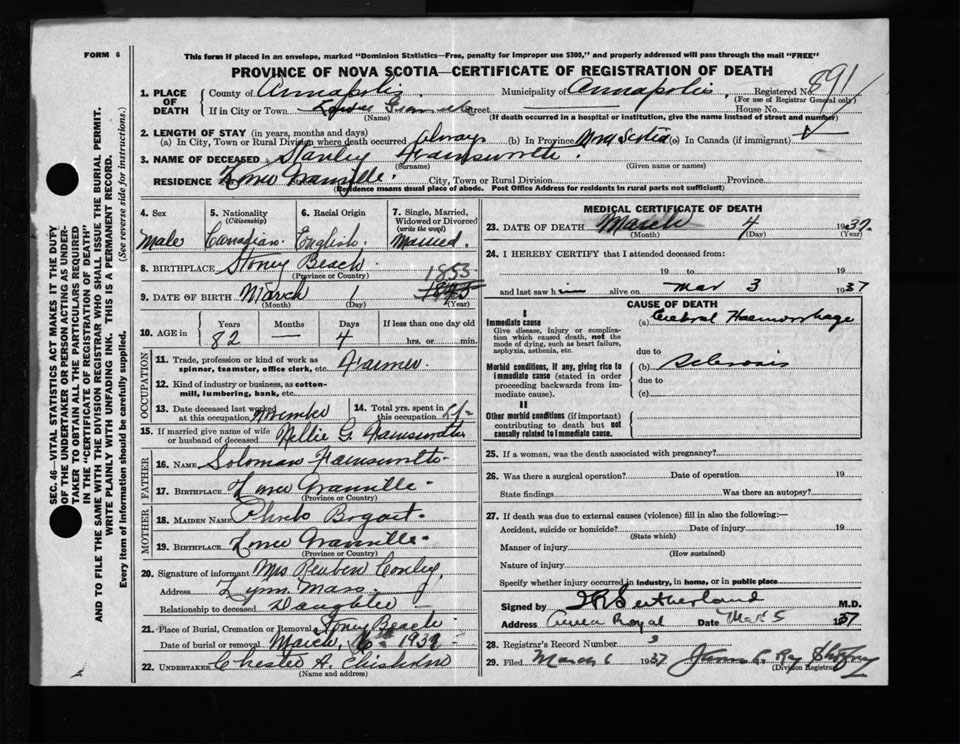 FORM 6
This form if placed in an envelope, marked "Dominion Statistics—Free, penalty for improper use $300," and properly addressed will pass through the mail "FREE"
PROVINCE OF NOVA SCOTIA—CERTIFICATE OF REGISTRATION OF DEATH
891
1. PLACE OF DEATH
County of Annapolis
Municipality of Annapolis
Registered No.
(For use of Registrar General only)
If in City or Town Lower Granville Street House No.
(Name) (If death occurred in a hospital or institution, give the name instead of street and number)
2. LENGTH OF STAY (in years, months and days)
(a) In City, Town or Rural Division where death occurred Always (b) In Province Nova Scotia (c) In Canada (if immigrant)
3. NAME OF DECEASED Stanley Farnsworth
(Surname) (Given name or names)
RESIDENCE Lower Granville. City, Town or Rural Division Province
(Residence means usual place of abode. Post Office Address for residents in rural parts not sufficient)
4. Sex
Male
5. Nationality
(Citizenship)
Canadian.
6. Racial Origin
English.
7. Single, Married, Widowed or Divorced
(write the word)
Married.
8. BIRTHPLACE Stoney Beach.
(Province or Country)
9. DATE OF BIRTH March 1 1855
(Month) (Day) (Year)
10. AGE in
Years Months Days If less than one day old
82 — 4 hrs. or min.
OCCUPATION
11. Trade, profession or kind of work as spinner, teamster, office clerk, etc. Farmer.
12. Kind of industry or business, as cotton-mill, lumbering, bank, etc.
13. Date deceased last worked at this occupation November
14. Total yrs. spent in this occupation
15. If married give name of wife or husband of deceased Nellie G. Farnsworth
FATHER
16. Name Soloman Farnsworth
17. Birthplace Lower Granville
(Province or Country)
MOTHER
18. Maiden Name Bogart
19. Birthplace Lower Granville
(Province or Country)
20. Signature of informant Mrs Reuben Conley,
Address Lynn Mass.
Relationship to deceased Daughter
21. Place of Burial, Cremation or Removal Stoney Beach
Date of burial or removal March 6th 1937
22. UNDERTAKER Chester A. Chisholm
(Name and address)
MEDICAL CERTIFICATE OF DEATH
23. DATE OF DEATH March 4 1937.
(Month) (Day) (Year)
24. I HEREBY CERTIFY that I attended deceased from:
19 to 19
and last saw him alive on Mar 3 1937
CAUSE OF DEATH
I
Immediate cause
Give disease, injury or complication which caused death, not the mode of dying, such as heart failure, asphyxia, asthenia, etc.
(a) Cerebral Haemorrhage
due to
Morbid conditions, if any, giving rise to immediate cause (stated in order proceeding backwards from immediate cause).
(b) Sclerosis
due to
(c)
II
Other morbid conditions (if important) contributing to death but not causally related to immediate cause.
25. If a woman, was the death associated with pregnancy?
26. Was there a surgical operation? Date of operation 19
State findings Was there an autopsy?
27. If death was due to external causes (violence) fill in also the following:—
Accident, suicide or homicide? Date of injury 19
(State which)
Manner of injury
(How sustained)
Nature of injury
Specify whether injury occurred in industry, in home, or in public place
Signed by Sutherland M.D.
Address Royal Date Mar 5 1937
28. Registrar's Record Number 3
29. Filed March 6 1937
(Division Registrar)
AND TO FILE THE SAME WITH THE DIVISION REGISTRAR WHO SHALL ISSUE THE BURIAL PERMIT.
SEC. 46—VITAL STATISTICS ACT MAKES IT THE DUTY OF THE UNDERTAKER OR PERSON ACTING AS UNDERTAKER TO OBTAIN ALL THE PARTICULARS REQUIRED IN THE "CERTIFICATE OF REGISTRATION OF DEATH"
WRITE PLAINLY WITH UNFADING INK. THIS IS A PERMANENT RECORD.
Every item of information should be carefully supplied. (See reverse side for instructions.)